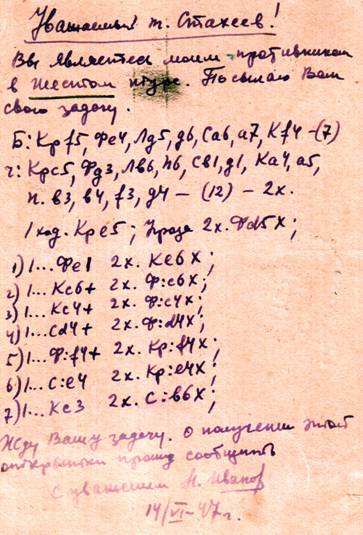 Уважаемый т. Стахеев!
Вы являетесь моим противником
в шестом туре. Посылаю Вам
свою задачу.
Б: Крf5, Фe4, Лg5, g6, Са6, а7, Кf4 – (7)
ч: Крс5, Фg3, Лв6, h6, Св1, g1, Ка4, а5,
п. в3, в4, f3, g4 – (12) – 2х.
1 ход. Кре5; Угроза 2х. Фd5X;
1) 1... Фе1 2х. Ке6X;
2) 1... Кс6+ 2х. Ф:с6X;
3) 1... Кс4+ 2х. Ф:с4X;
4) 1... Сd4+ 2х. Ф:d4X;
5) 1... Ф:f4+ 2х. Кр:f4X;
6) 1... С:е4 2х. Кр:е4X;
7) 1... Кс3 2х. С:в6X;
Жду Вашу задачу. О получении этой
открытки прошу сообщить
С уважением Н. Иванов
14/VI–47 г.